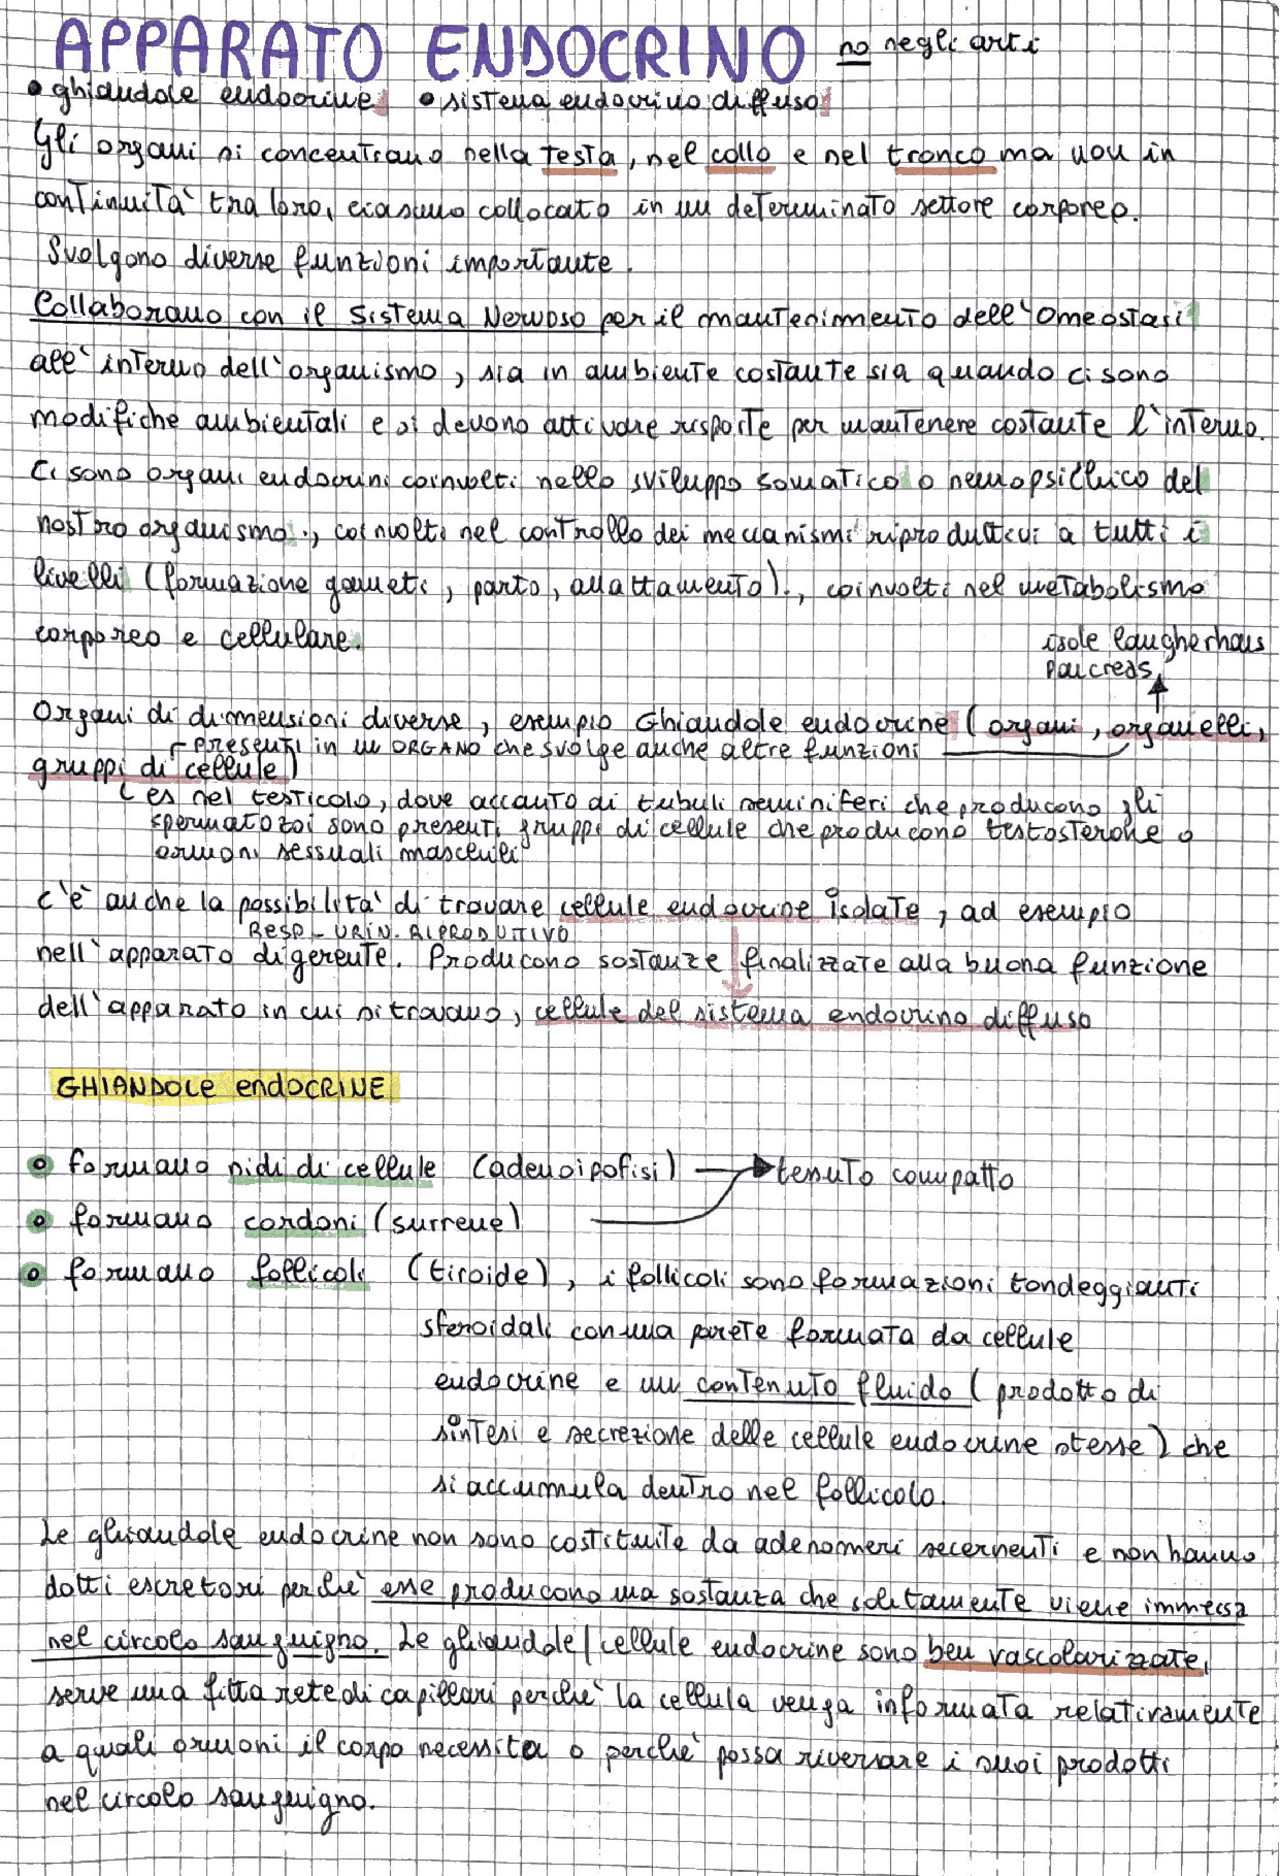 APPARATO ENDOCRINO no negli arti
• ghiandole endocrine • sistema endocrino diffuso
Gli organi si concentrano nella testa, nel collo e nel tronco ma non in
continuità tra loro, ciascuno collocato in un determinato settore corporeo.
Svolgono diverse funzioni importante.
Collaborano con il Sistema Nervoso per il mantenimento dell'omeostasi
all'interno dell'organismo, sia in ambiente costante sia quando ci sono
modifiche ambientali e si devono attivare risposte per mantenere costante l'interno.
Ci sono organi endocrini coinvolti nello sviluppo somatico o neuropsichico del
nostro organismo, coinvolti nel controllo dei meccanismi riproduttivi a tutti i
livelli (formazione gameti, parto, allattamento), coinvolti nel metabolismo
corporeo e cellulare.
isole laugherhaus
pancreas
Organi di dimensioni diverse, esempio Ghiandole endocrine (organi, organelli,
presenti in un ORGANO che svolge anche altre funzioni
gruppi di cellule)
es nel testicolo, dove accanto ai tubuli seminiferi che producono gli
spermatozoi sono presenti gruppi di cellule che producono testosterone o
ormoni sessuali maschili
c'è anche la possibilità di trovare cellule endocrine isolate, ad esempio
RESP - URIN. RIPRODUTTIVO
nell'apparato digerente. Producono sostanze finalizzate alla buona funzione
dell'apparato in cui si trovano, cellule del sistema endocrino diffuso
GHIANDOLE ENDOCRINE
• formano nidi di cellule (adenoipofisi) → tessuto compatto
• formano cordoni (surrene)
• formano follicoli (tiroide), i follicoli sono formazioni tondeggianti
sferoidali con una parete formata da cellule
endocrine e un contenuto fluido (prodotto di
sintesi e secrezione delle cellule endocrine stesse) che
si accumula dentro nel follicolo.
Le ghiandole endocrine non sono costituite da adenomeri secernenti e non hanno
dotti escretori perchè esse producono una sostanza che solitamente viene immessa
nel circolo sanguigno. Le ghiandole/cellule endocrine sono ben vascolarizzate,
serve una fitta rete di capillari perchè la cellula venga informata relativamente
a quali ormoni il corpo necessita o perchè possa riversare i suoi prodotti
nel circolo sanguigno.